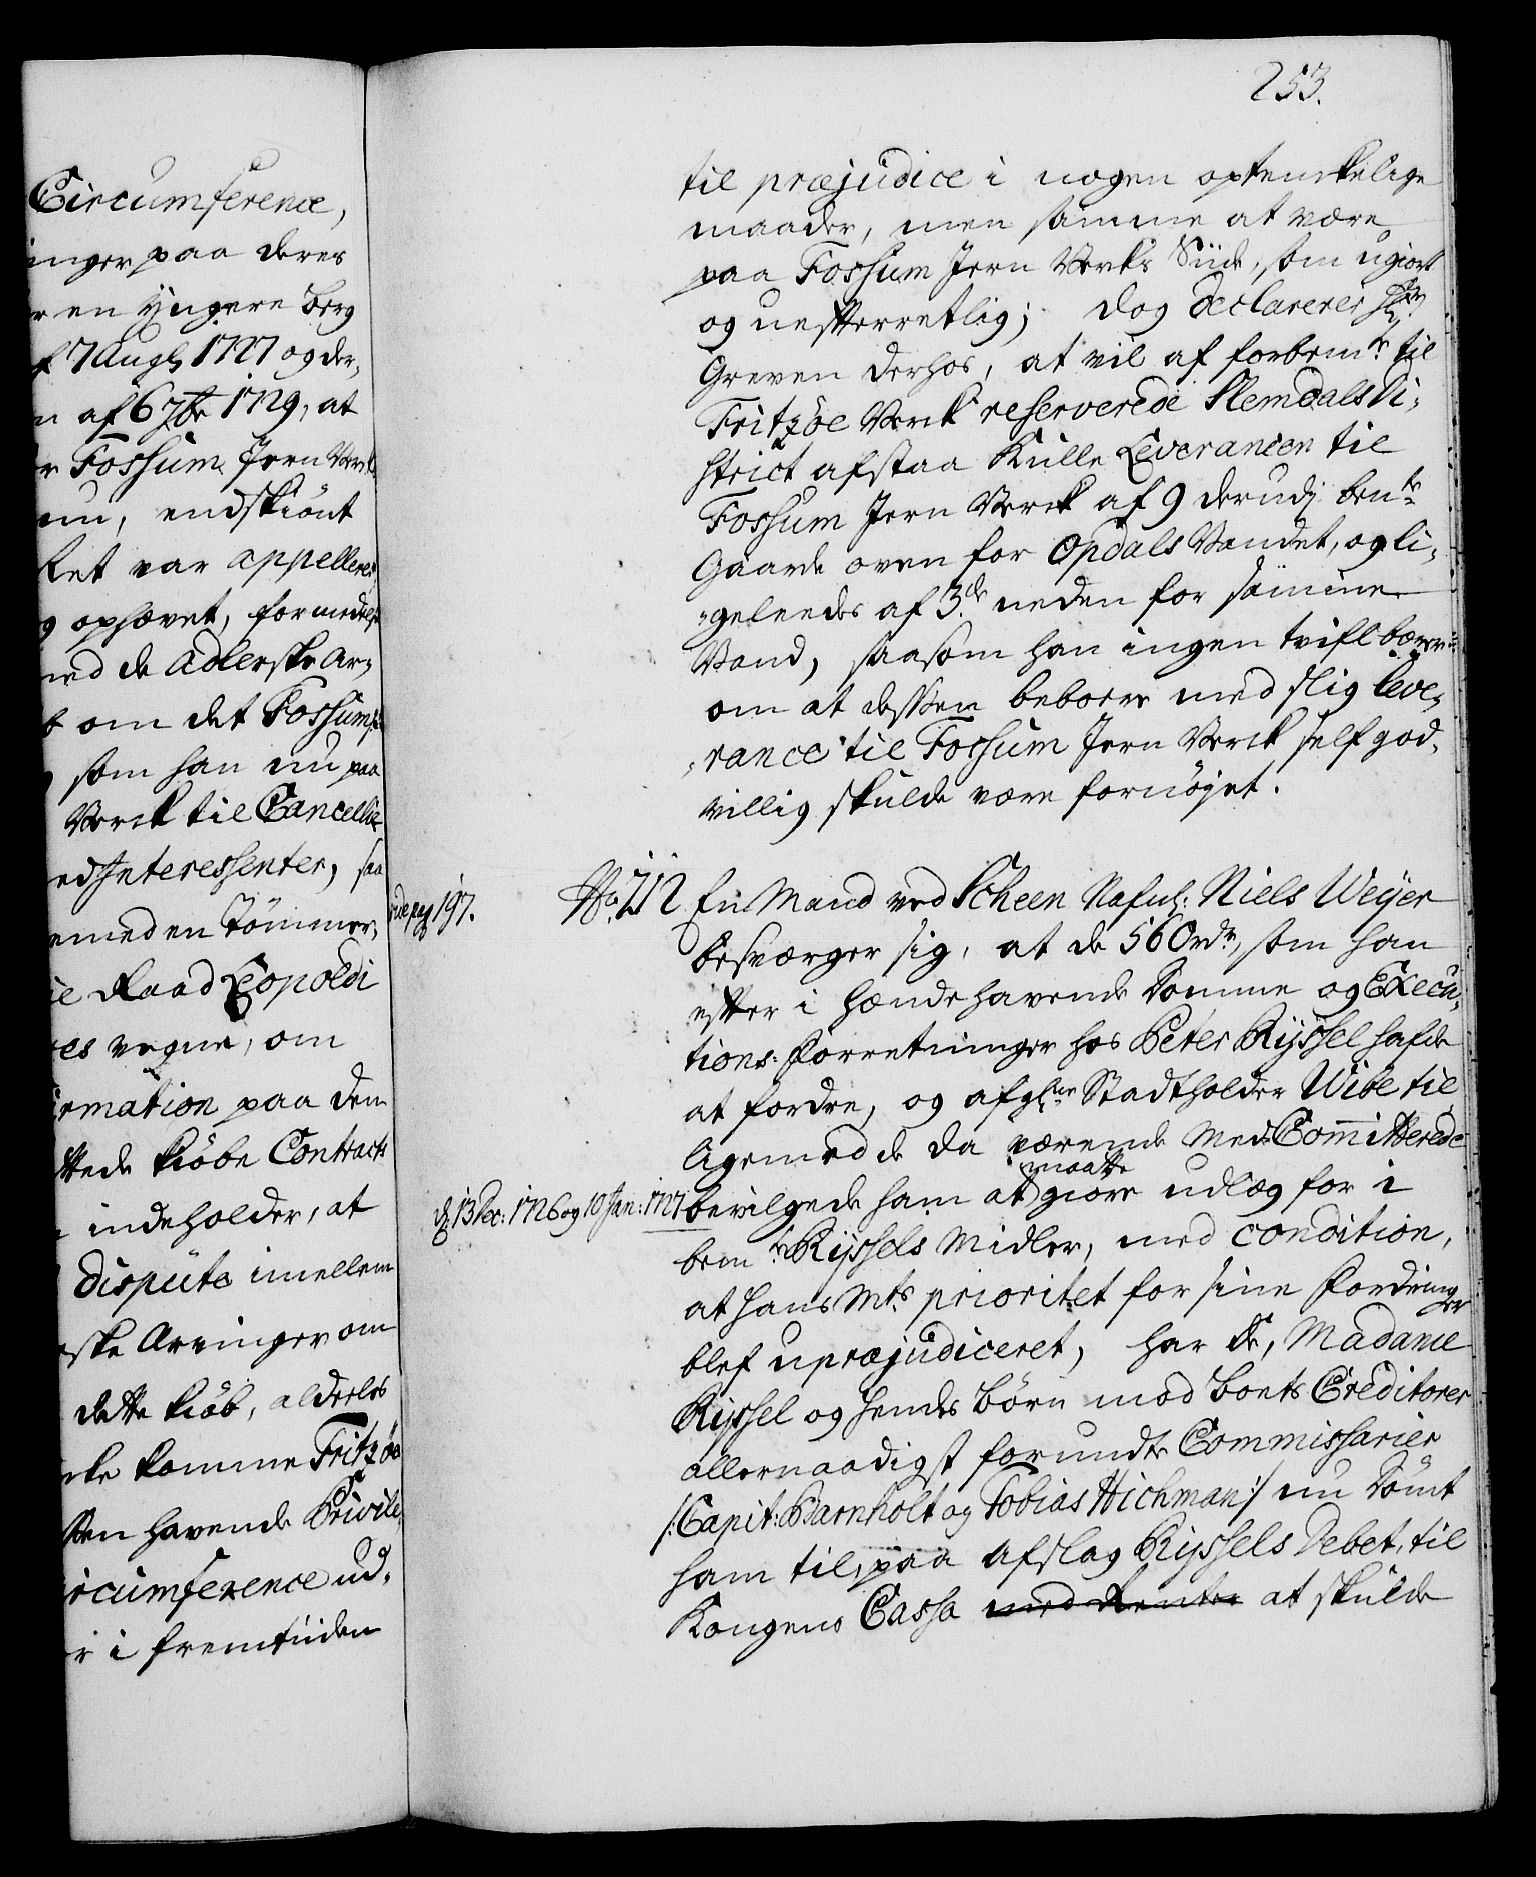 Circumference,
inger paa deres
r en yngere berg
f 7 Aug 1727 og der,
n af 6 7br 1729, at
r Fossum Jern Verk
nu, endskiönt
Ret var appelleret
g ophævet, formedelst
med de Adlerske Ar,
t om det Fossum
som han nu paa
Verck til Cancellie
ed Interessenter, saa
emed en Tömmer,
ie Raad Leopoldi
es vegne, om
irmation paa den
ttede kiöbe Contract
indeholder, at
dispute imellem
ske Arvinger om
dette kiöb, alderles
cke komme Fritzöe
sen havende Privile,
ircumference ud,
r i fremtiiden
253.
til præjudice i nogen optenckelige
maader, men samme at være
paa Fossum Jern Vercks Siide, som ugiort
og uefterretlig; dog declarerer Hr
Greven derhos, at vil af forbemte til
Fritzöe Verck reserverede Slemdals Di,
strict afstaa Kulle Leverancen til
Fossum Jern Verck af 9 derudj bente
Gaarde oven for Opdals Vandet, og li,
geleedes af 3de neden for samme
Vand, saasom han ingen tvifl bærer
om at dessen beboere med slig leve,
rance til Fossum Jern Verck self god,
villig skulde være fornöjet.
vide pag 197.
No 212 En Mand ved Scheen Nafnl: Niels Weyer
besværger sig, at de 560 rdr, som han
efter i hændehavende Domme og Execu,
tions: Forretninger hos Peter Ryssel hafde
at fordre, og afgl: Stadtholder Wibe til
Ligemed de da værende Med Committerede
d. 13 Dec: 1726 og 10 Jan: 1727
bevilgede ham at maatte giöre udlæg for i
bemte Ryssels Midler, med condition,
at hans Mts prioritet for sine Fordringer
blef upræjudiceret, har de, Madame
Ryssel og hendes börn mod boets Creditorer
allernaadigst forundte Commissarier
/: Capit: Barnholt og Tobias Hichman :/ nu dömt
ham til, paa afslag Ryssels Debet, til
Kongens Cassa med Renter at skulde